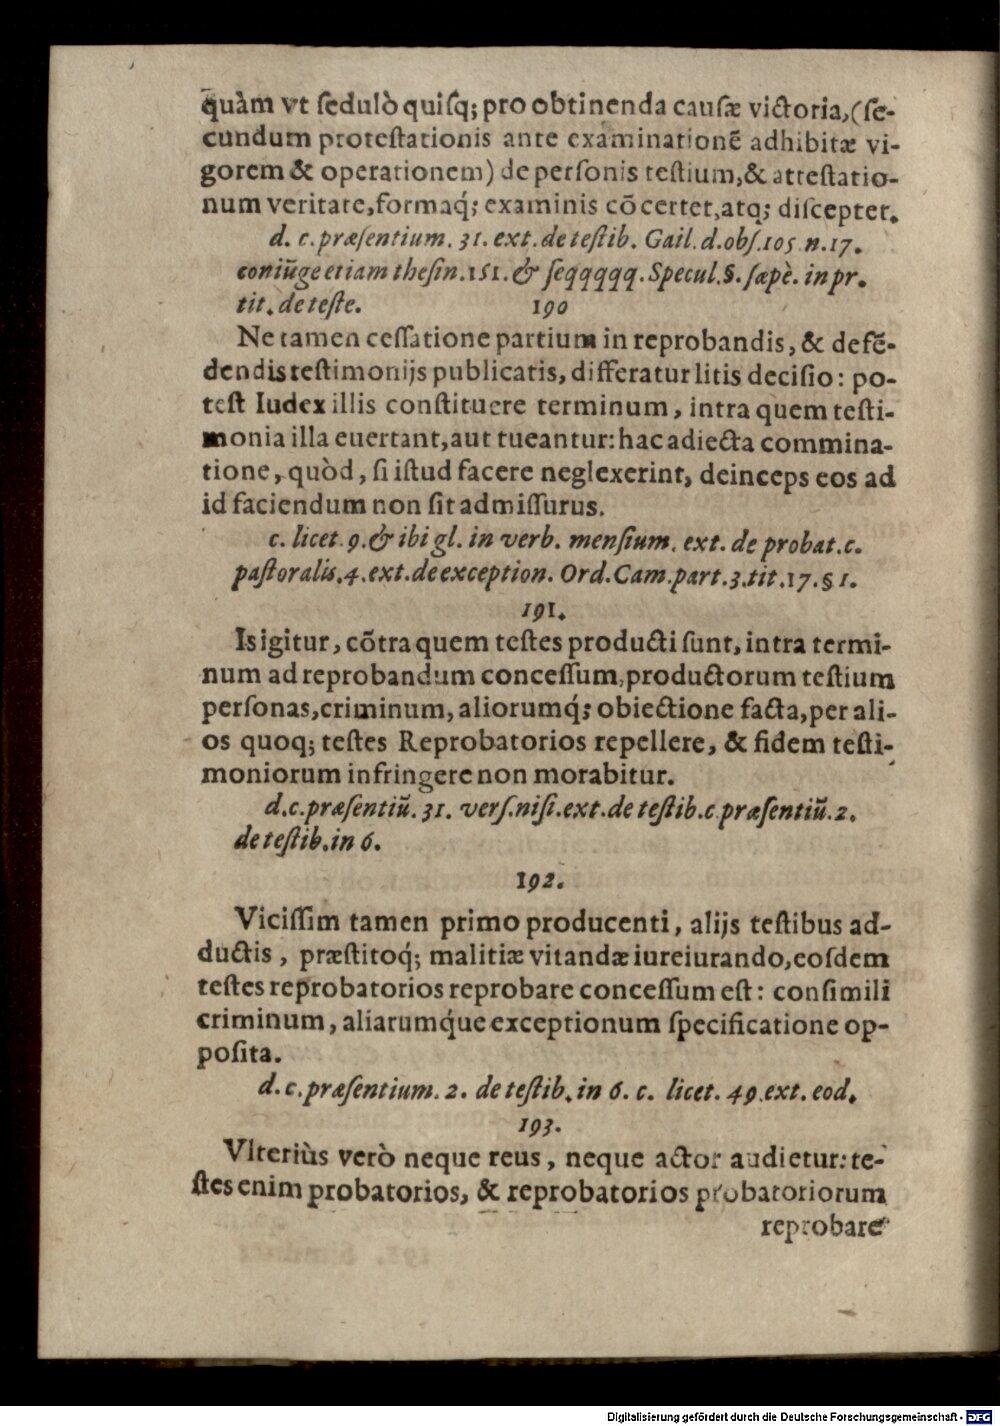 quàm vt ſedulò quiſq; pro obtinenda cauſæ victoria, (ſe-
cundum proteſtationis ante examinationẽ adhibitæ vi-
gorem & operationem) de perſonis teſtium, & atteſtatio-
num veritate, formaq́; examinis cõcertet, atq; diſceptet.
d. c. præſentium. 31. ext. de teſtib. Gail. d. obſ. 105 n. 17.
coniũge etiam theſin. 151. & ſeqqqqq. Specul. §. ſæpè. in pr.
tit. de teſte.
190
Ne tamen ceſſatione partium in reprobandis, & defẽ-
dendis teſtimonijs publicatis, differatur litis deciſio: po-
teſt Iudex illis conſtituere terminum, intra quem teſti-
monia illa euertant, aut tueantur: hac adiecta commina-
tione, quòd, ſi iſtud facere neglexerint, deinceps eos ad
id faciendum non ſit admiſſurus.
c. licet. 9. & ibi gl. in verb. menſium. ext. de probat. c.
paſtoralis. 4. ext. de exception. Ord. Cam. part. 3. tit. 17. § 1.
191.
Is igitur, cõtra quem teſtes producti ſunt, intra termi-
num ad reprobandum conceſſum, productorum teſtium
perſonas, criminum, aliorumq́; obiectione facta, per ali-
os quoq; teſtes Reprobatorios repellere, & fidem teſti-
moniorum infringere non morabitur.
d. c. præſentiũ. 31. verſ. niſi. ext. de teſtib. c præſentiũ. 2.
de teſtib. in 6.
192.
Viciſſim tamen primo producenti, alijs teſtibus ad-
ductis, præſtitoq́; malitiæ vitandæ iureiurando, eoſdem
teſtes reprobatorios reprobare conceſſum eſt: conſimili
criminum, aliarumq́ue exceptionum ſpecificatione op-
poſita.
d. c. præſentium. 2. de teſtib. in 6. c. licet. 49. ext. eod.
193.
Vlteriùs verò neque reus, neque actor audietur: te-
ſtes enim probatorios, & reprobatorios probatoriorum
reprobare
Digitalisierung gefördert durch die Deutsche Forschungsgemeinschaft - DFG